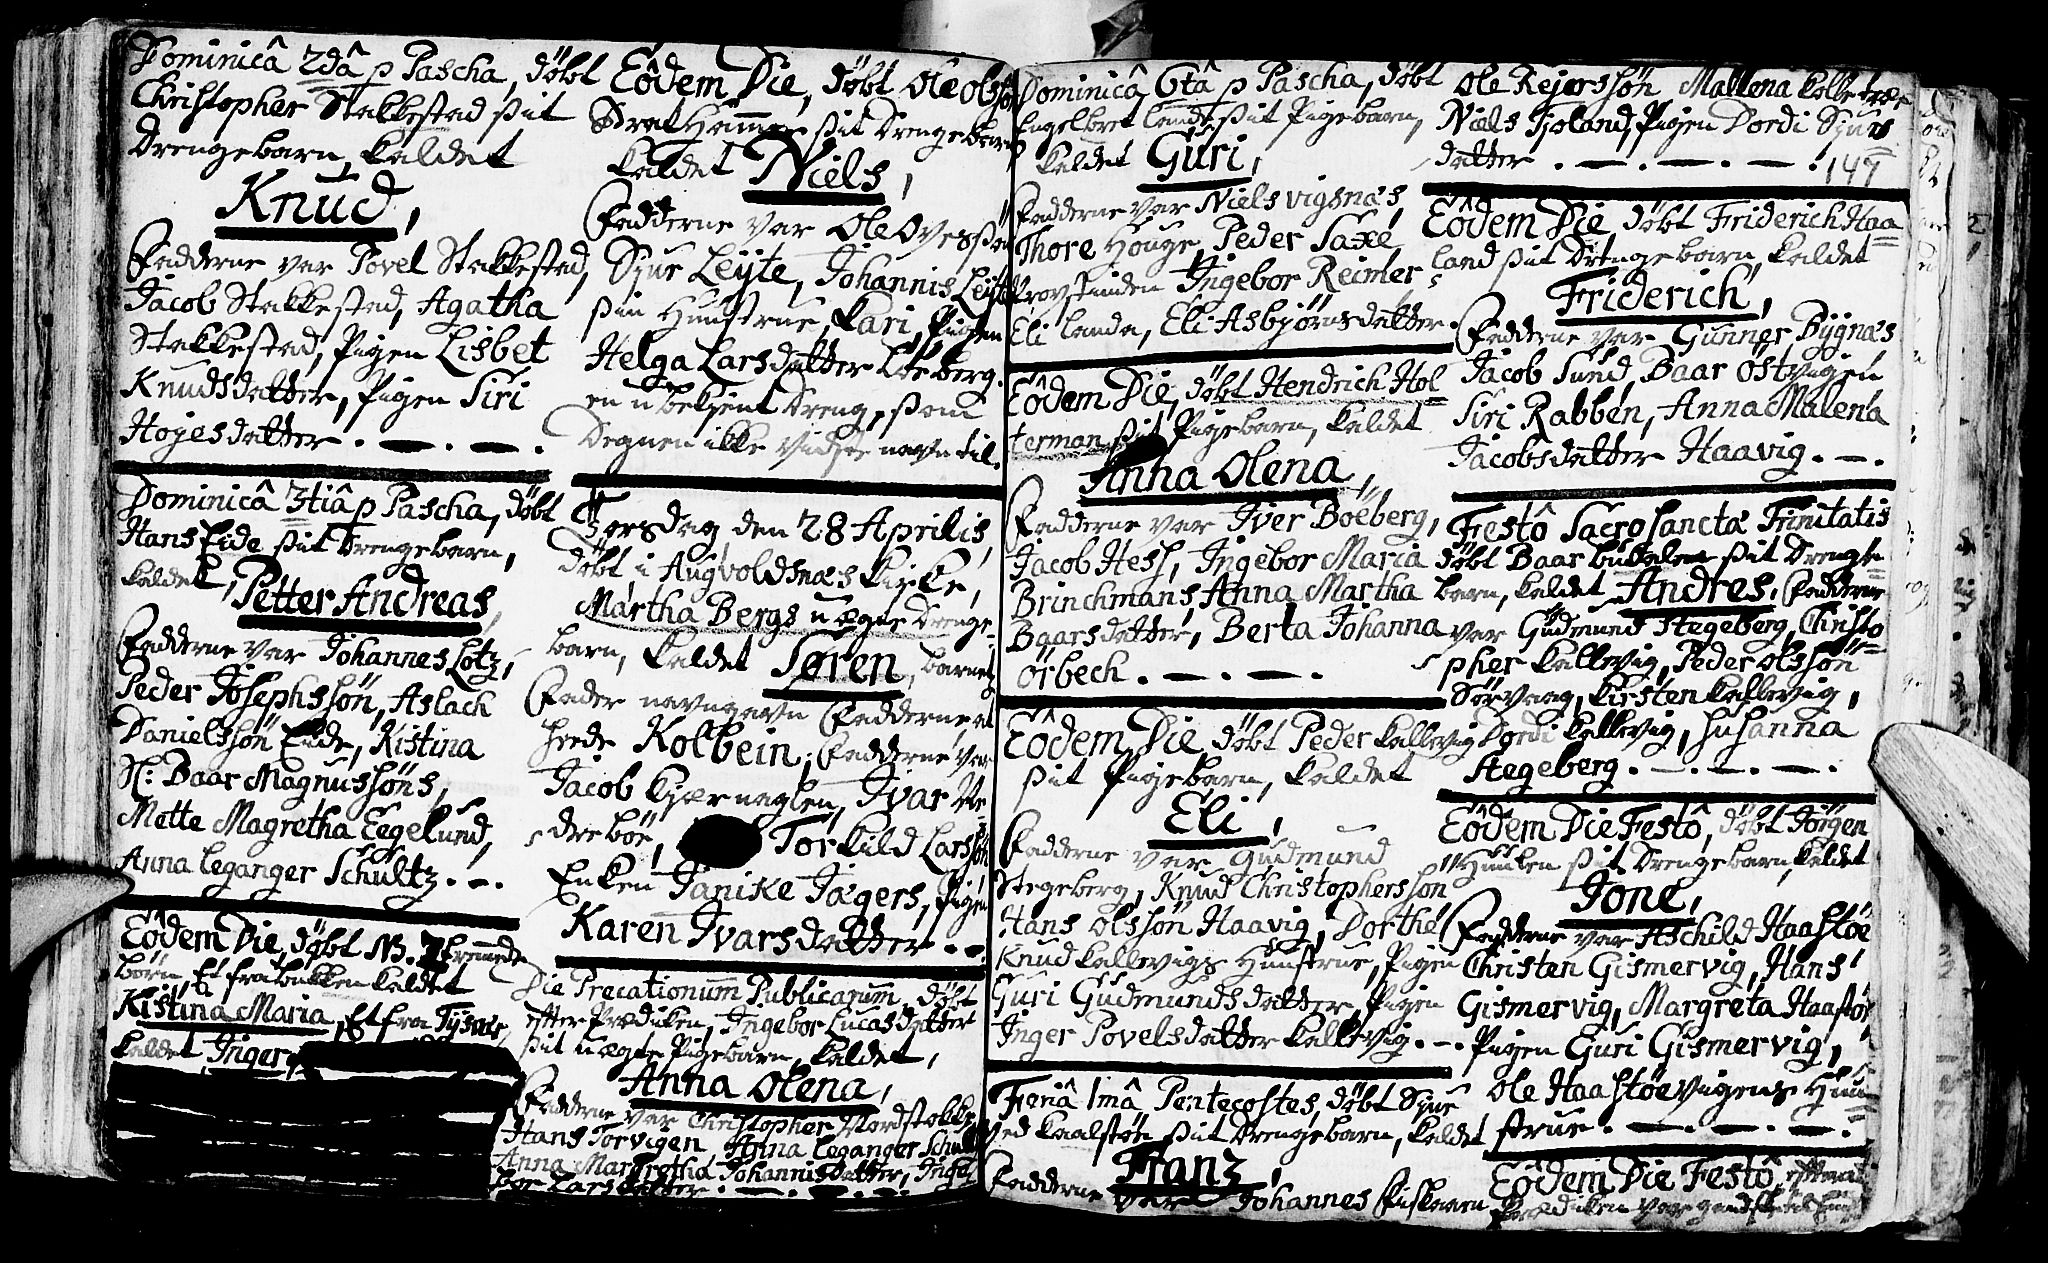 Dominicâ 2dâ p Pascha, döbt
Christopher Stakkestad sit
Drengebarn, kaldet
Knud,
Fadderne var Povel Stakkestad,
Jacob Stakkestad, Agatha
Stakkestad, Pigen Lisbet
Knudsdatter, Pigen Siri
Hojesdatter . — . — .
Dominicâ 3tiâ p Pascha, döbt
Hans Eide sit Drengebarn,
kaldet, Petter Andreas,
Fadderne var Johannes Lotz,
Peder Josephssön, Aslach
Danielssön Eide, Kistina
Sl: Baar Magnussöns,
Mette Magretha Eegelund,
Anna Leganger Schultz . – .
Eôdem Die, döbt NB. 2 fremmede
börn, Et fra bukken kaldet
Kistina Maria, Et fra Tysvær,
kaldet, Inger,
Eôdem Die, döbt Ole Olssön
Hammer sit Drengebarn
kaldet Niels,
Fadderne var Ole Ovessön
Sjur Leyte, Johannis Leyte
sin Hustrue, Kari, Pigen
Helga Larsdatter Löeberg.
en ubekjent Dreng, som
Degnen ikke vidste navn til.
Torsdag den 28 Aprilis,
döbt i Augvoldsnæs Kirke,
Martha Bergs uægte Drenge-
barn, kaldet Søren, barnets
Fader navngavn Fadderne at
heede Kolbein; Fadderne var
Jacob Kjærnaglen, Ivar Ne-
drebøe, Torkild Larssön
Enken Janike Jægers, Pigen
Karen Ivarsdatter . – .
Die Precationum Publicarum, döbt
efter Prædicken, Ingebor Lucasdatter
sit uægte Pigebarn, kaldet,
Anna Olena,
Fadderne var Christopher Nordstokke,
Hans Torvigen, Anna Leganger Schultz
Anna Margretha Johannisdatter, Inge-
bor Larsdatter . — . — .
Dominicâ 6tâ p Pascha, döbt
Engelbret Lande sit Pigebarn,
kaldet Guri,
Fadderne var Niels Vigsnæs,
Thore Houge, Peder Saxe
Provstinden Ingebor Reimers,
Eli Landa, Eli Asbjörnsdatter.
Eôdem Die, döbt Hendrich Hol=
terman sit Pigebarn, kaldet
Anna Olena,
Fadderne var Iver Böeberg,
Jacob Hess, Ingebor Maria
Brinchmans, Anna Martha
Baarsdatter, Berta Johanna
Örbech . — . — .
Eôdem Die, döbt Peder Kallevig
sit Pigebarn, kaldet
Eli,
Fadderne var Gudmund
Stegeberg, Knud Christopherssön
Hans Olssön Haavig, Dorthe
Knud Kallevigs Hustrue, Pigen
Guri Gudmundsdatter, Pigen
Inger Povelsdatter Kallevig . – .
Feriâ 1mâ Pentecostes, döbt Sjur
ved Kaalstöe sit Drengebarn, kaldet
Franz,
Fadderne var Johannes Fiskaaen
Ole Rejerssön Mallena Kalletræe
Niels Tjoland, Pigen Dordi Sjurs
datter . — . — . — .
147
Eôdem Die döbt Friderich Haa=
land sit Drengebarn, kaldet
Friderich,
Fadderne var Gunner Bygnæs
Jacob Sund, Baar Östvigen
Siri Rabben, Anna Malena
Jacobsdatter Haavig . – .
Festô Sacrosanctæ Trinitatis
döbt Baar sit Drenge=
barn, kaldet Andres, Fadderne
var Gudmund Stegeberg, Christo=
pher Kallevig, Peder Olssön
Sörvaag, Kirsten Kallevig,
Dordi Kallevig, Susanna
Stegeberg . — . — . — .
Eôdem Die Festô, döbt Jörgen
sit Drengebarn, kaldet
Jone,
Fadderne var Aschild Haastöe
Christen Gismervig, Hans
Gismervig, Margreta Haastöe
Pigen Guri Gismervig,
Ole Haastöevigens Hu=
strue . — . — . — .
Eôdem Die Festô,